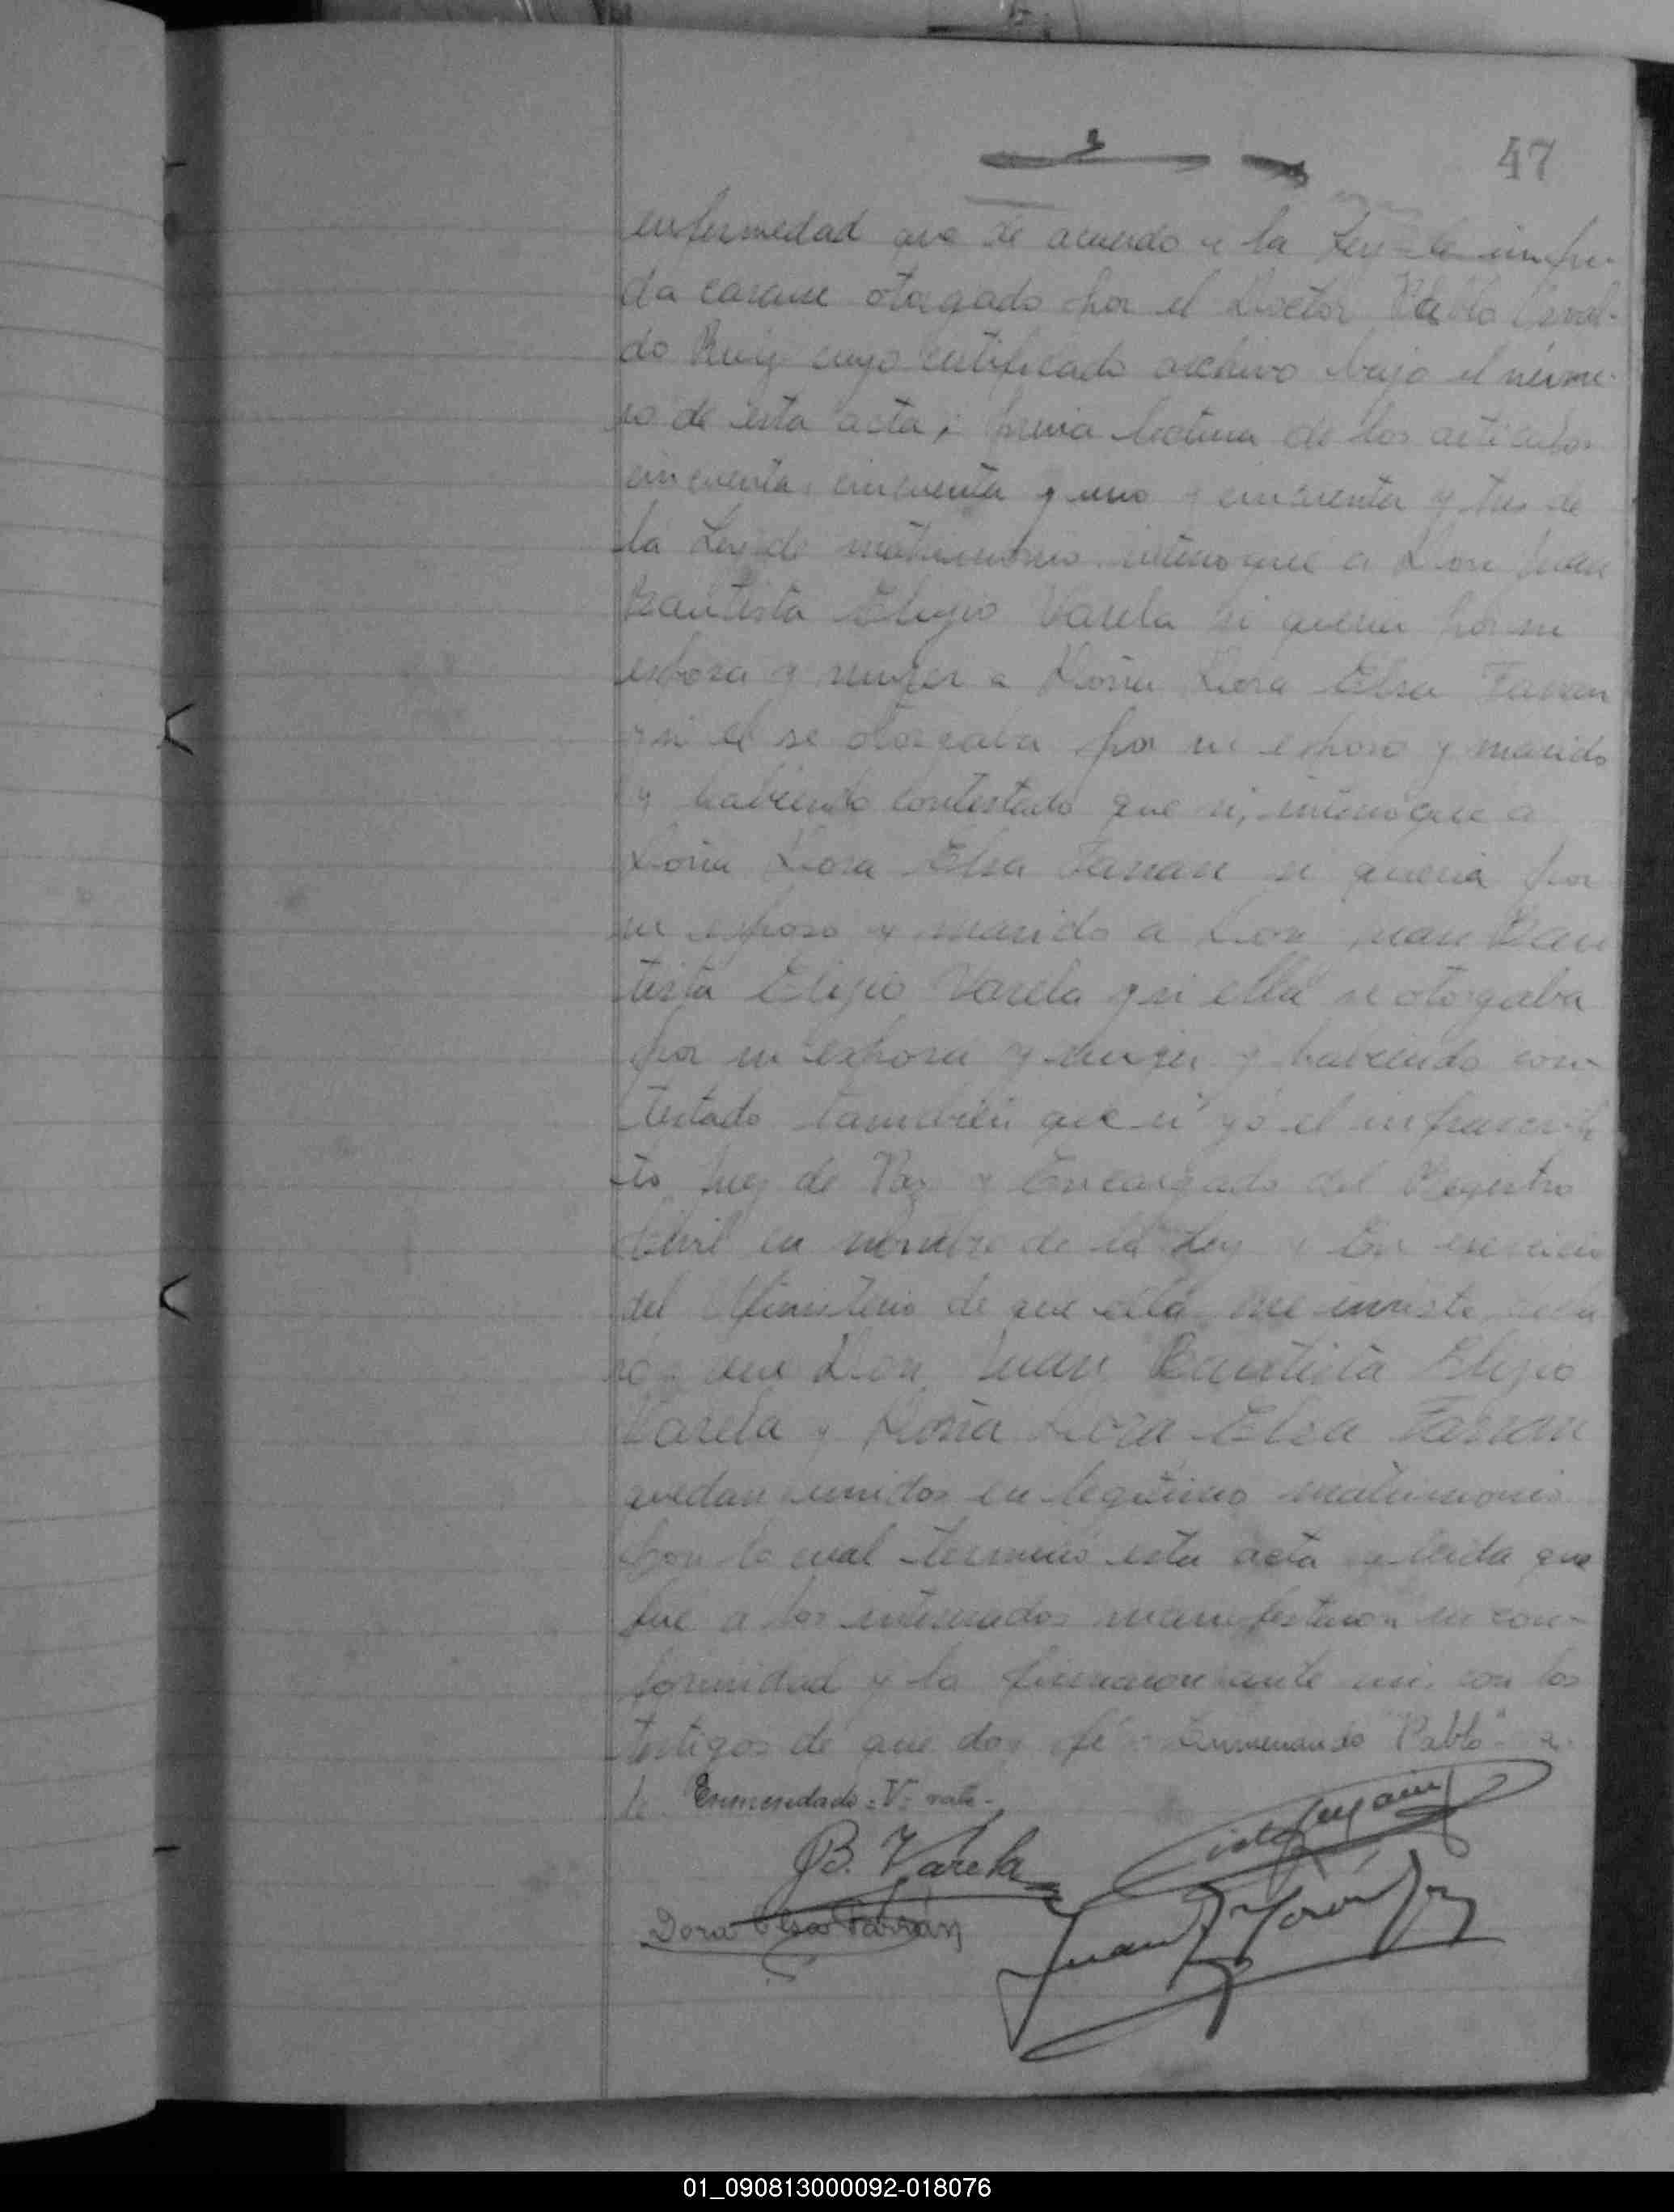 47
enfermedad que de acuerdo a la Ley le impi-
da casarse otorgado por el Doctor Pablo Osval-
do Ruiz cuyo certificado archivo bajo el núme-
ro de esta acta, previa lectura de los articulos
cincuenta, cincuenta y uno y cincuenta y tres de
la Ley de matrimonio interrogué a Don Juan
Bautista Eligio Varela si queria por su
esposa y mujer a Doña Dora Elsa Farran
y si el se otorgaba por su esposo y marido
y habiendo contestado que si, interrogué a
Doña Dora Elsa Farran si queria por
su esposo y marido a Don Juan Bau
tista Eligio Varela y si ella se otorgaba
por su esposa y mujer y habiendo con-
testado también que si yo el infrascrip
to Juez de Paz y Encargado del Registro
Civil en nombre de la Ley y en ejercicio
del Ministerio de que ella me inviste decla
ro que Don Juan Bautista Eligio
Varela y Doña Dora Elsa Farran
quedan unidos en legitimo matrimonio
con lo cual terminó esta acta y leida que
fué a los interesados manifestaron su con-
formidad y la firmaron ante mi, con los
testigos de que doy fé - Enmendado "Pablo" -
Enmendado = V = vale -
B. Varela
Dora Elsa Farrán
Juan
01_090813000092-018076